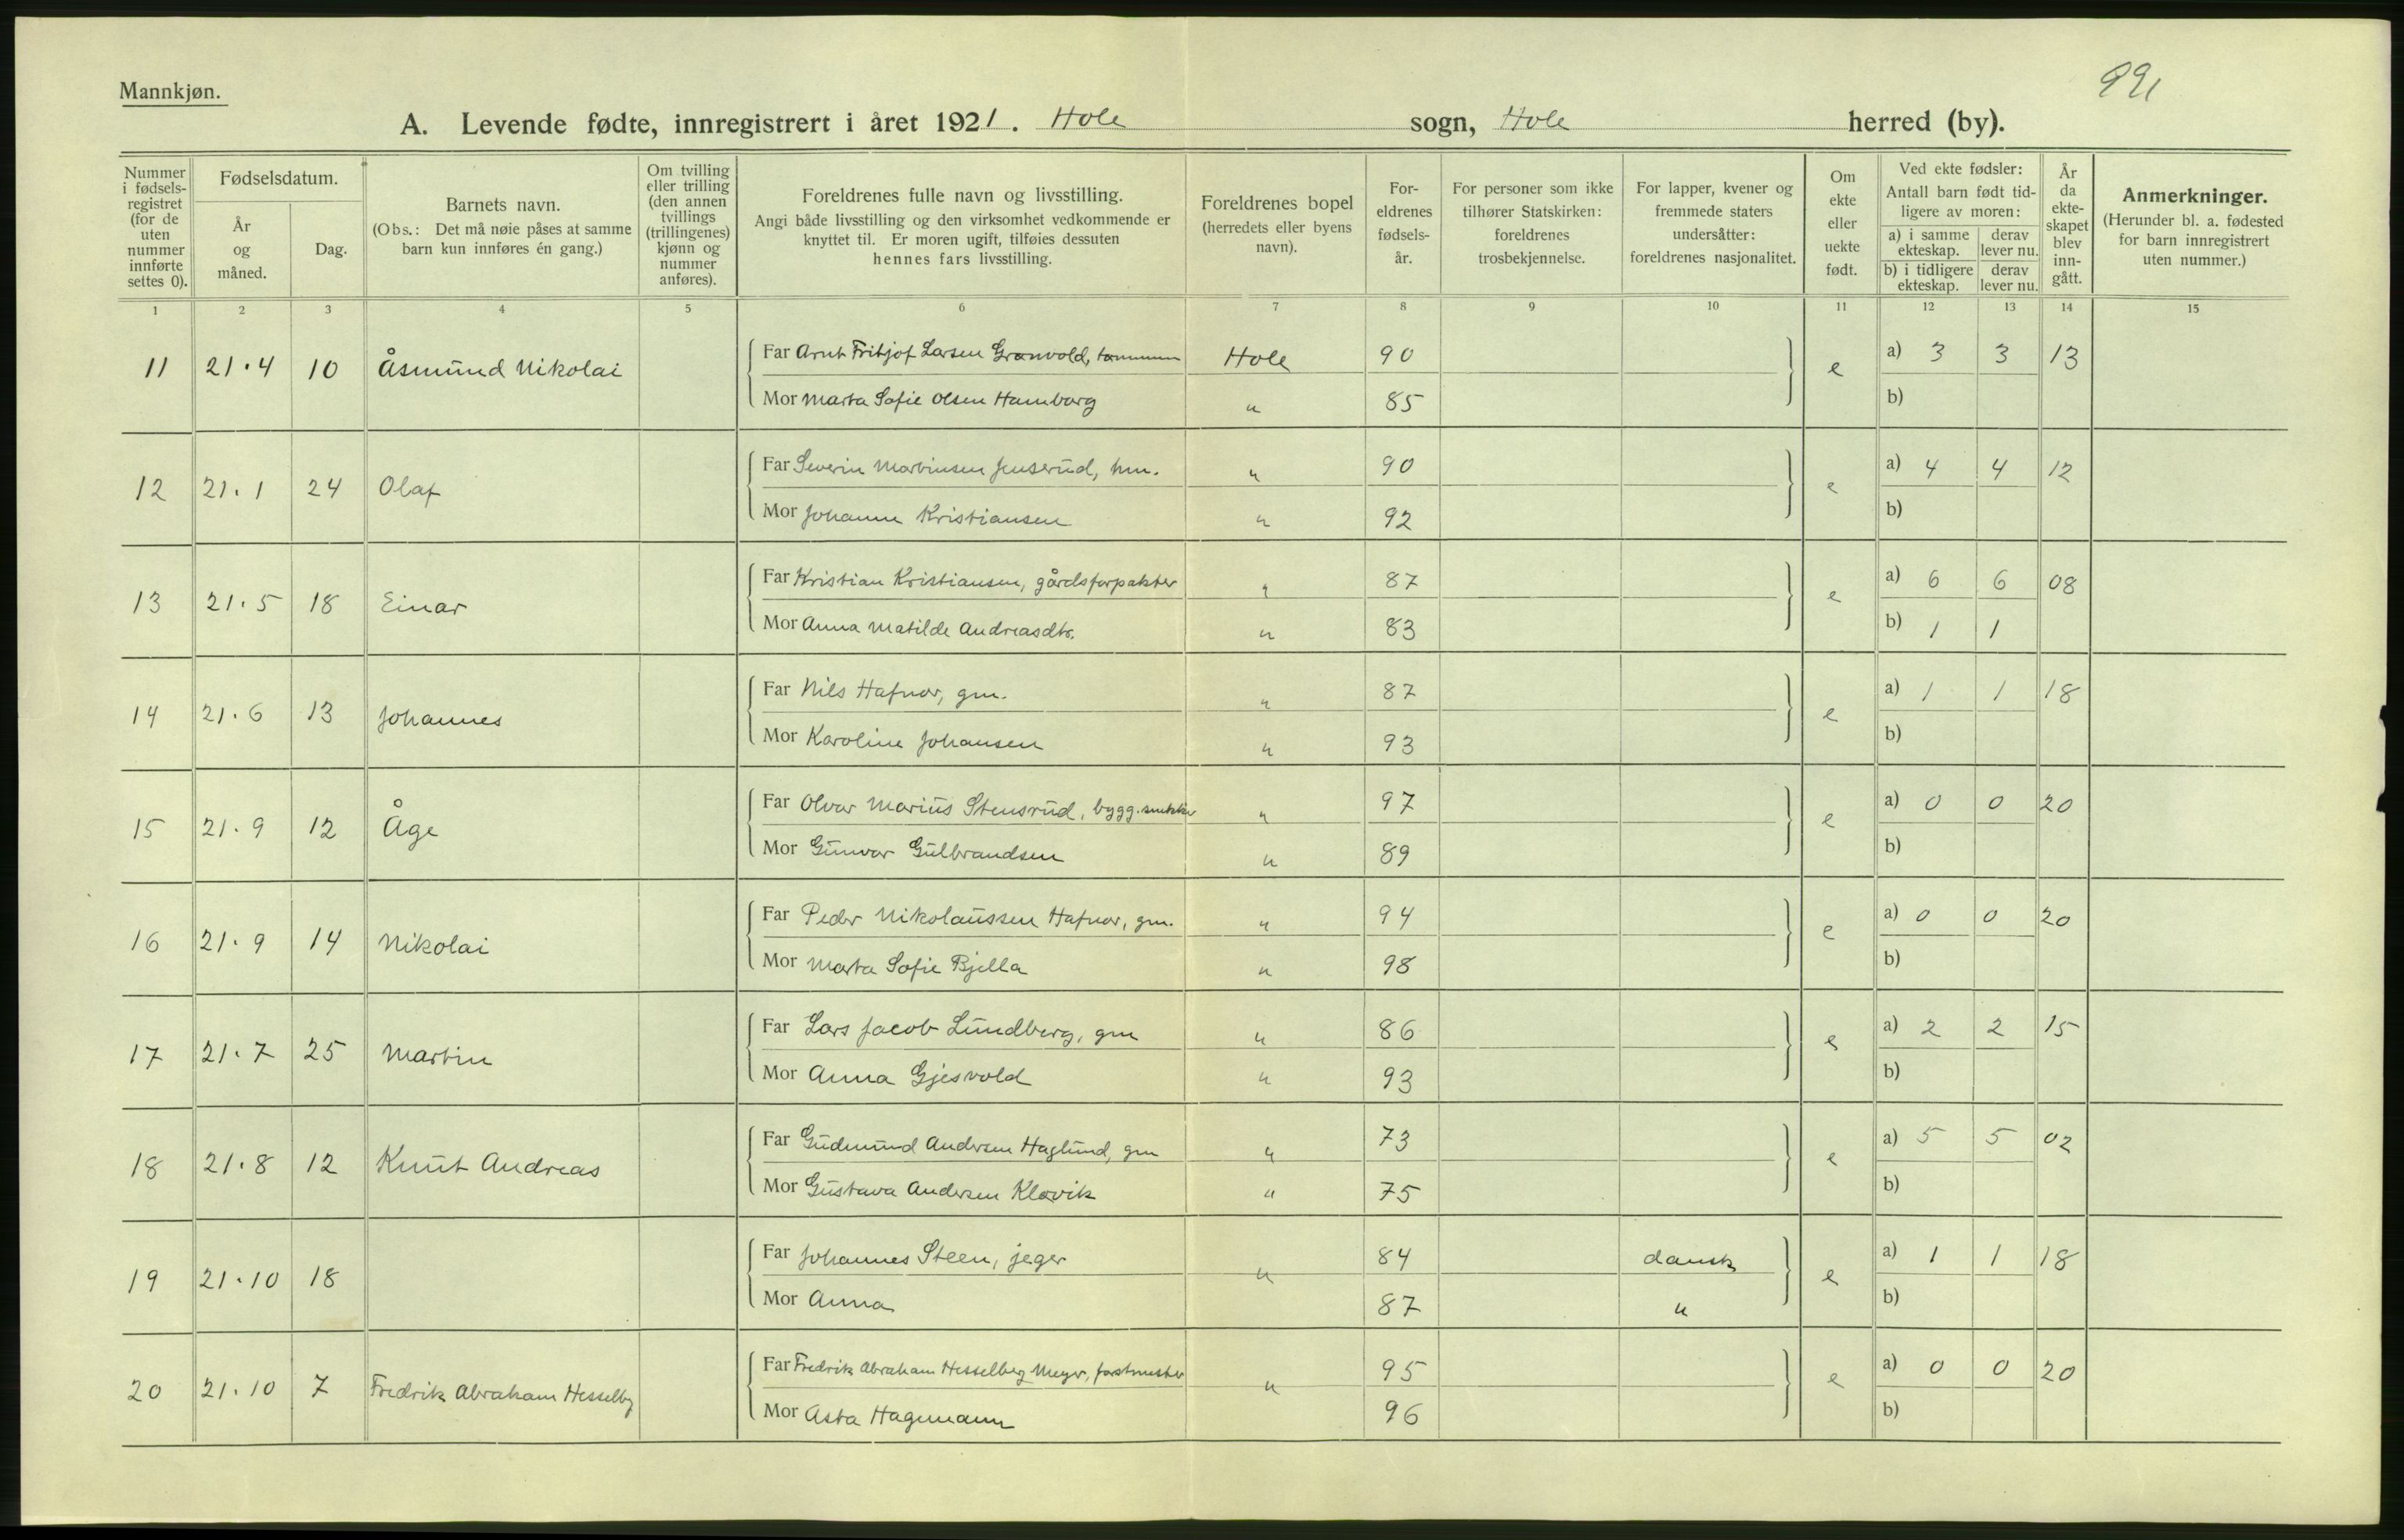 991
Mannkjøn.
A. Levende fødte, innregistrert i året 1921. Hole sogn, Hole herred (by).
Nummer i fødsels-registret (for de uten nummer innførte settes 0).
Fødselsdatum.
År og måned.
Dag.
Barnets navn.
(Obs.: Det må nøie påses at samme barn kun innføres én gang.)
Om tvilling eller trilling (den annen tvillings (trillingenes) kjønn og nummer anføres).
Foreldrenes fulle navn og livsstilling.
Angi både livsstilling og den virksomhet vedkommende er knyttet til. Er moren ugift, tilføies dessuten hennes fars livsstilling.
Foreldrenes bopel (herredets eller byens navn).
For-eldrenes fødsels-år.
For personer som ikke tilhører Statskirken: foreldrenes trosbekjennelse.
For lapper, kvener og fremmede staters undersåtter: foreldrenes nasjonalitet.
Om ekte eller uekte født.
Ved ekte fødsler:
Antall barn født tid-ligere av moren:
a) i samme ekteskap. derav lever nu.
b) i tidligere ekteskap. derav lever nu.
År da ekte-skapet blev inn-gått.
Anmerkninger.
(Herunder bl. a. fødested for barn innregistrert uten nummer.)
1 2 3 4 5 6 7 8 9 10 11 12 13 14 15
11 21.4 10 Åsmund Nikolai Far Arnt Fritjof Larsen Granvold, Hole 90 e a) 3 3 13
Mor Marta Sofie Olsen Hamborg " 85 b)
12 21.1 24 Olaf Far Severin Martinsen Jenserud, hm. " 90 e a) 4 4 12
Mor Johanne Kristiansen " 92 b)
13 21.5 18 Einar Far Kristian Kristiansen, gårdsforpakter " 87 e a) 6 6 08
Mor Anna Matilde Andreasdtr. " 83 b) 1 1
14 21.6 13 Johannes Far Nils Hafnor, gm. " 87 e a) 1 1 18
Mor Karoline Johansen " 93 b)
15 21.9 12 Åge Far Olvar Marius Stensrud, bygg.snekker " 97 e a) 0 0 20
Mor Gunvor Gulbrandsen " 89 b)
16 21.9 14 Nikolai Far Peder Nikolaussen Hafnor, gm. " 94 e a) 0 0 20
Mor Marta Sofie Bjella " 98 b)
17 21.7 25 Martin Far Lars Jacob Lundberg, gm " 86 e a) 2 2 15
Mor Anna Gjesvold " 93 b)
18 21.8 12 Knut Andreas Far Gudmund Andersen Haglund, gm " 73 e a) 5 5 02
Mor Gustava Andersen Klovik " 75 b)
19 21.10 18 Far Johannes Steen, jeger " 84 dansk e a) 1 1 18
Mor Anna 87 " b)
20 21.10 7 Fredrik Abraham Hesselbg Far Fredrik Abraham Hesselberg Meyer, forstmester " 95 e a) 0 0 20
Mor Asta Hagemann 96 b)